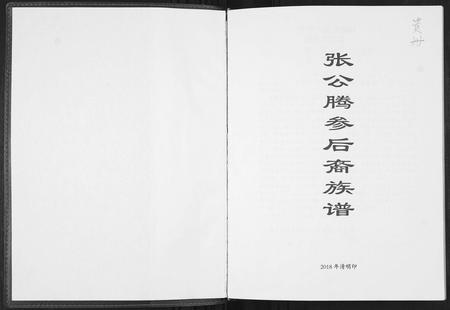 贵州
张公腾参后裔族谱
2018年清明印